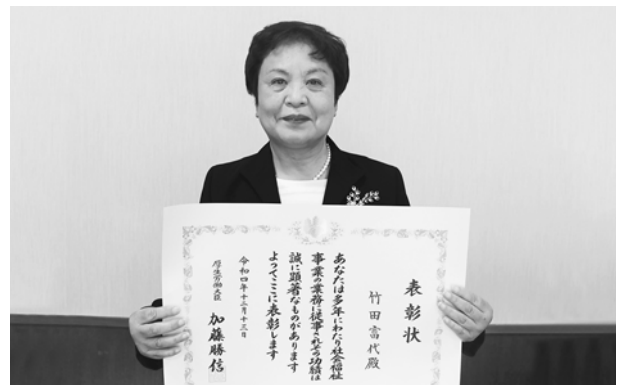 表彰状
竹田富代殿
あなたは多年にわたり社会福祉
事業の業務に従事されその功績は
誠に顕著なものがあります
よってここに表彰します
令和四年十二月十三日
厚生労働大臣 加藤勝信